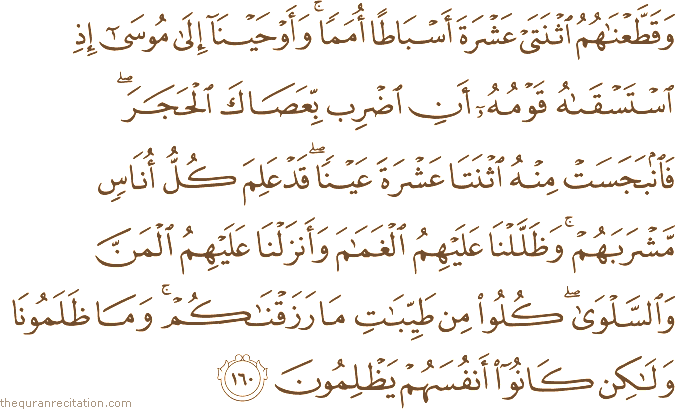 وَقَطَّعْنَٰهُمُ ٱثْنَتَىْ عَشْرَةَ أَسْبَاطًا أُمَمًا ۚ وَأَوْحَيْنَآ إِلَىٰ مُوسَىٰٓ إِذِ
ٱسْتَسْقَىٰهُ قَوْمُهُۥٓ أَنِ ٱضْرِب بِّعَصَاكَ ٱلْحَجَرَ ۖ
فَٱنۢبَجَسَتْ مِنْهُ ٱثْنَتَا عَشْرَةَ عَيْنًا ۖ قَدْ عَلِمَ كُلُّ أُنَاسٍ
مَّشْرَبَهُمْ ۚ وَظَلَّلْنَا عَلَيْهِمُ ٱلْغَمَٰمَ وَأَنزَلْنَا عَلَيْهِمُ ٱلْمَنَّ
وَٱلسَّلْوَىٰ ۖ كُلُوا۟ مِن طَيِّبَٰتِ مَا رَزَقْنَٰكُمْ ۚ وَمَا ظَلَمُونَا
وَلَٰكِن كَانُوٓا۟ أَنفُسَهُمْ يَظْلِمُونَ ١٦٠
thequranrecitation.com